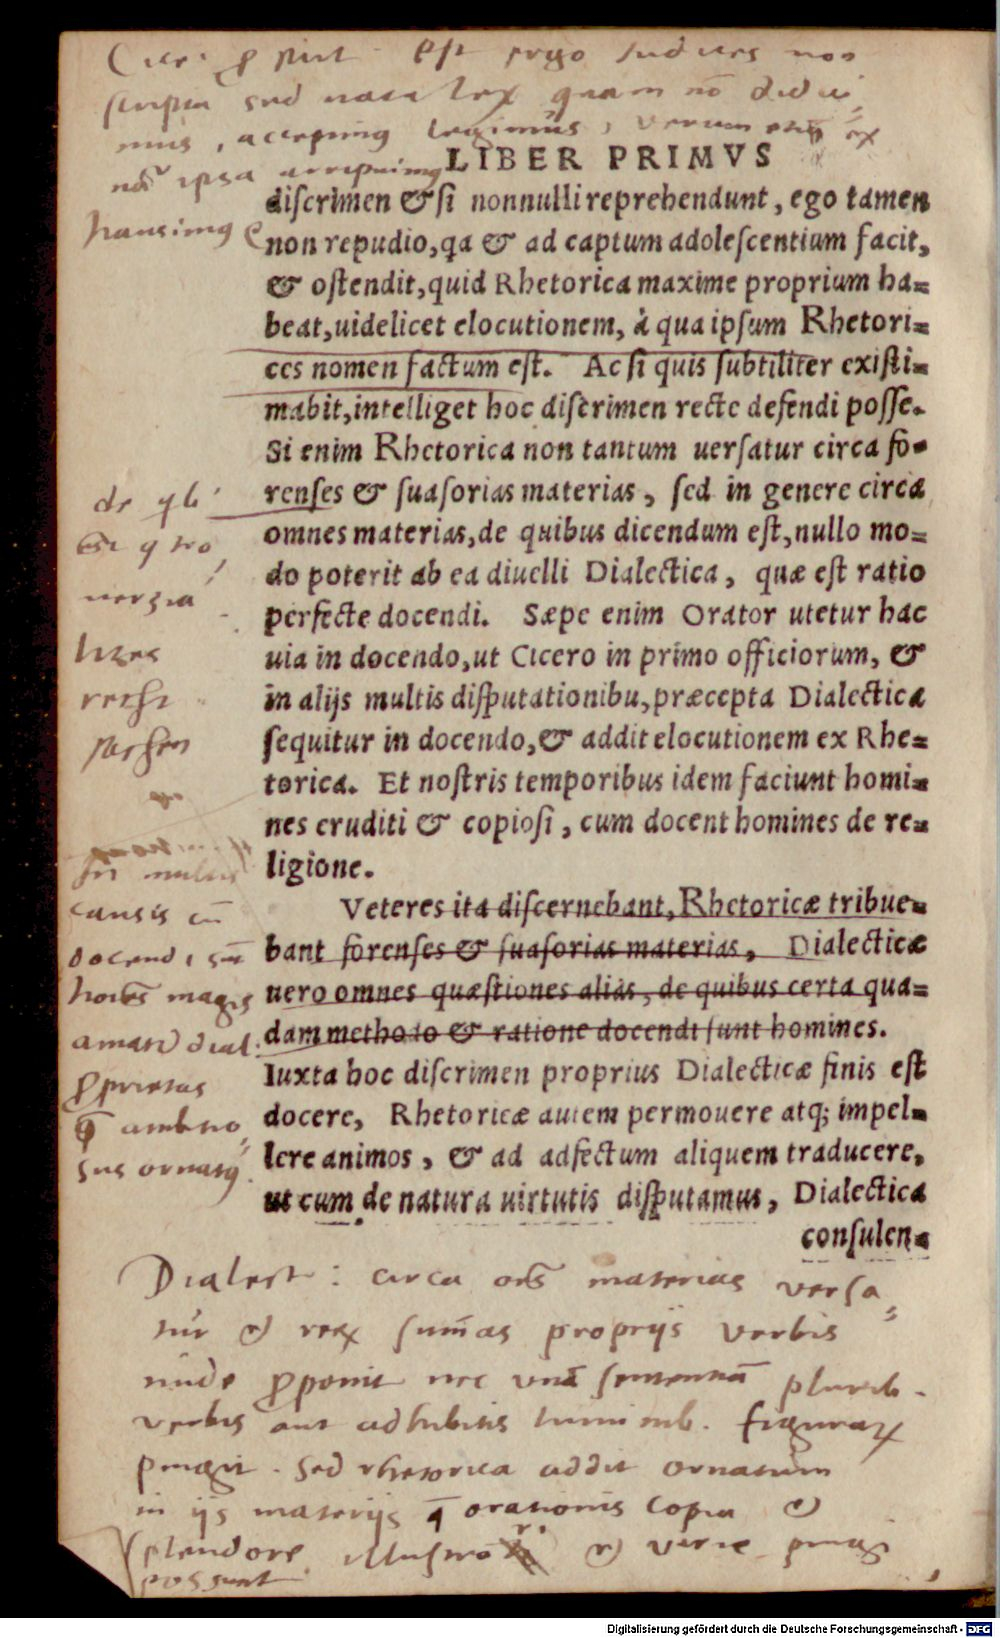 Cice: ꝓ
Est ergo Iudices non
scripta sed nata lex quam nō didici,
mus, accepimꝰ legimus, verum
ex
nā ipsa arripuimꝰ
hausimꝰ
LIBER PRIMVS
diſcrimen & ſi nonnulli reprehendunt, ego tamen
non repudio, qa & ad captum adoleſcentium facit,
& oſtendit, quid Rhetorica maxime proprium ha=
beat, uidelicet elocutionem, à qua ipſum Rhetori=
ces nomen factum eſt. Ac ſi quis ſubtiliter exiſti=
mabit, intelliget hoc diſcrimen recte defendi poſſe.
Si enim Rhetorica non tantum uerſatur circa fo=
renſes & ſuaſorias materias, ſed in genere circa
omnes materias, de quibus dicendum eſt, nullo mo=
do poterit ab ea diuelli Dialectica, quæ eſt ratio
perfecte docendi. Sæpe enim Orator utetur hac
uia in docendo, ut Cicero in primo officiorum, &
in alijs multis diſputationibu, præcepta Dialectica
ſequitur in docendo, & addit elocutionem ex Rhe=
torica. Et noſtris temporibus idem faciunt homi=
nes eruditi & copioſi, cum docent homines de re=
ligione.
Veteres ita diſcernebant, Rhetoricæ tribue=
bant forenſes & ſuaſorias materias, Dialecticæ
uero omnes quæſtiones alias, de quibus certa qua=
dam methodo & ratione docendi ſunt homines.
Iuxta hoc diſcrimen proprius Dialecticæ finis eſt
docere, Rhetoricæ autem permouere atq; impel=
lere animos, & ad adfectum aliquem traducere,
ut cum de natura uirtutis diſputamus, Dialectica
conſulen=
de
versia
causis cū
docendi sūt
magis
amant dial:
proprietas
ꝙ ambitio,
sus ornatꝰ.
Dialect: circa oēs materias versa,
tur & reꝝ sum̄as proprijs verbis
nude ꝓponit nec unā sententiā plurib.
verbis aut adhibitis luminib. figuraꝝ
pingit. Sed rhetorica addit ornatum
in ijs materijs q̄ orationis copia &
splendore illustra
& verie pingi
possunt
Digitalisierung gefördert durch die Deutsche Forschungsgemeinschaft - DFG